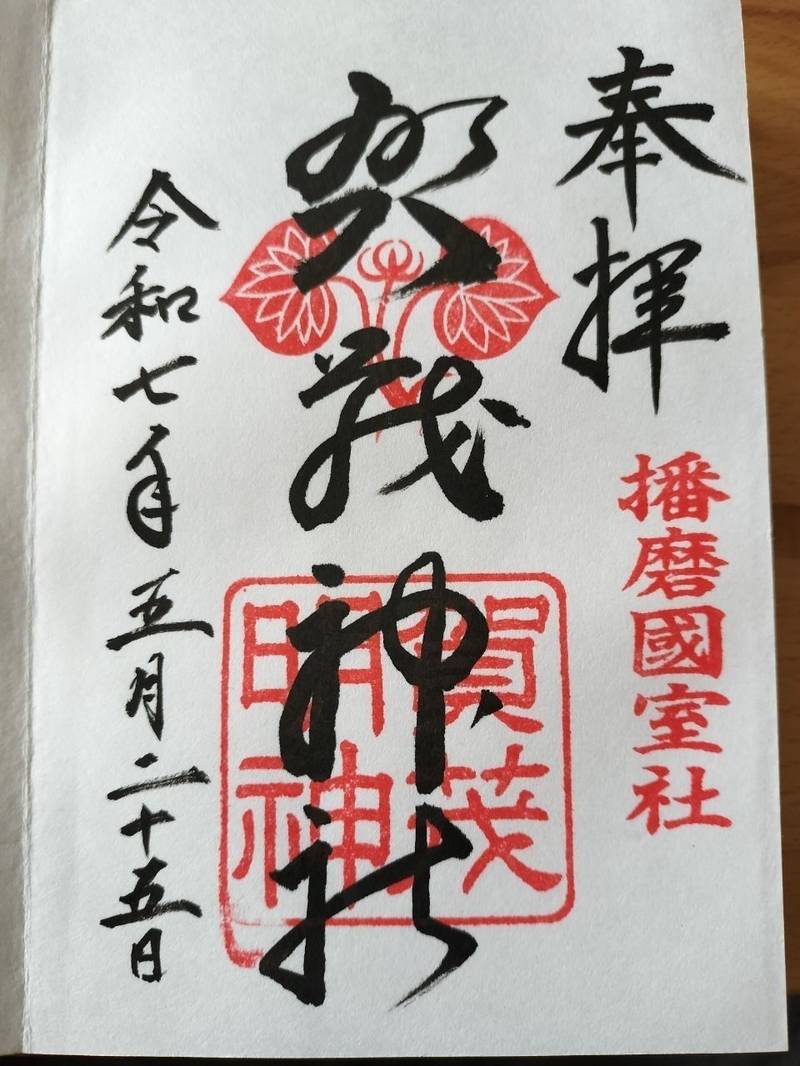 奉拝
播磨國室社
賀茂神社
賀茂
明神
令和七年五月二十五日